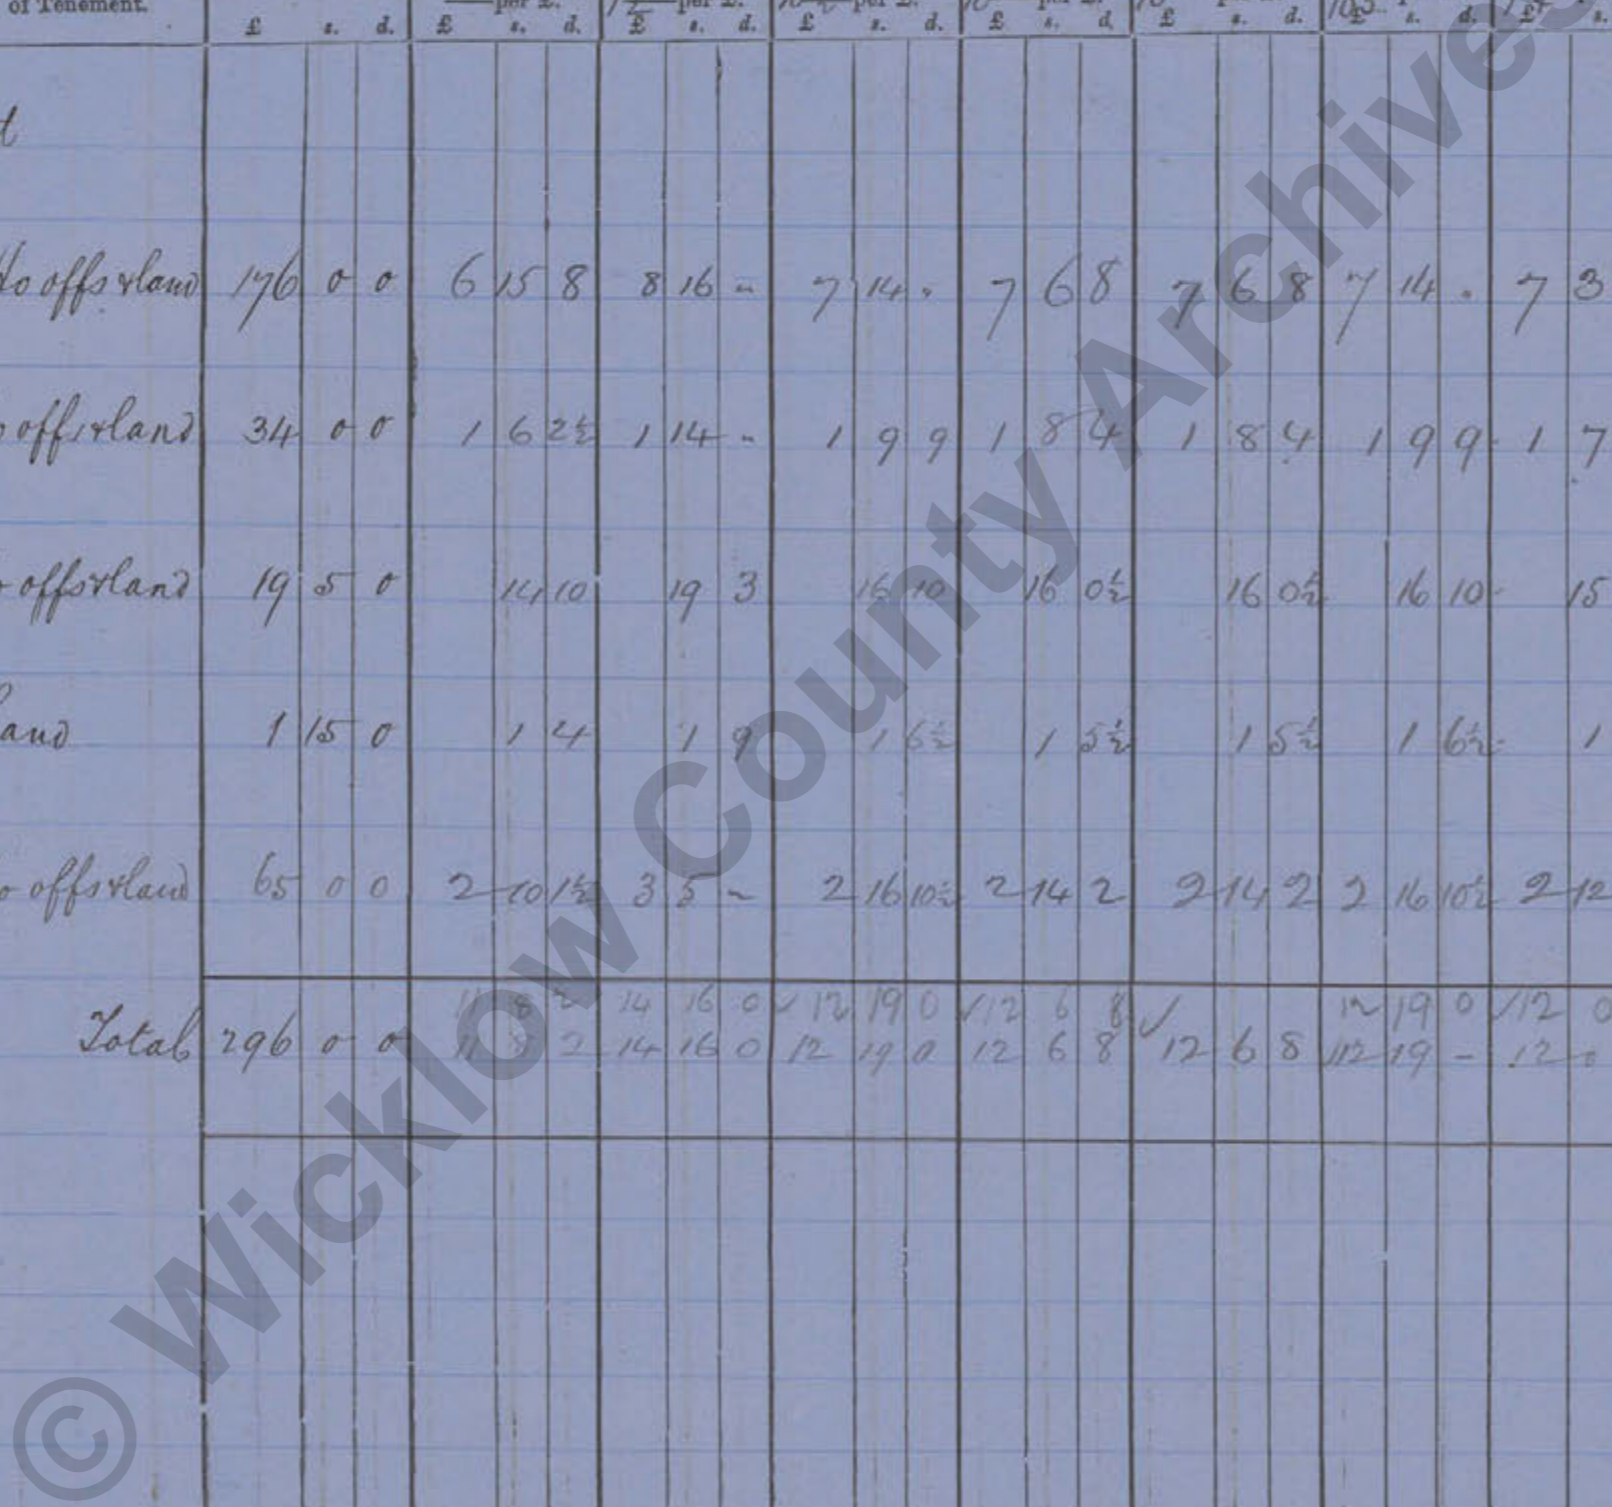 of Tenement. per £. per £. per £.
£ s. d. £ s. d. £ s. d. £ s. d. £ s. d. £ s. d. £ s. d. £ s.
Ho offs & land 176 0 0 6 15 8 8 16 - 7 14 - 7 6 8 7 6 8 7 14 - 7 3
o offs & land 34 0 0 1 6 2½ 1 14 - 1 9 9 1 8 4 1 8 4 1 9 9 1 7
offs & land 19 5 0 14 10 19 3 16 10 16 0½ 16 0½ 16 10 15
and 1 15 0 1 4 1 9 1 6½ 1 5½ 1 5½ 1 6½ 1
o offs & land 65 0 0 2 10 1½ 3 5 - 2 16 10½ 2 14 2 2 14 2 2 16 10½ 2 12
11 8 2 14 16 0 ✓ 12 19 0 ✓ 12 6 8 ✓ 12 19 0 ✓ 12 0
Total 296 0 0 11 8 2 14 16 0 12 19 0 12 6 8 12 6 8 12 19 - 12 0
© Wicklow County Archives